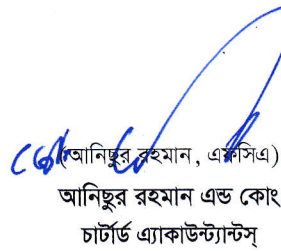 (আনিছুর রহমান, এফসিএ)
আনিছুর রহমান এন্ড কোং
চার্টার্ড এ্যাকাউন্ট্যান্টস্